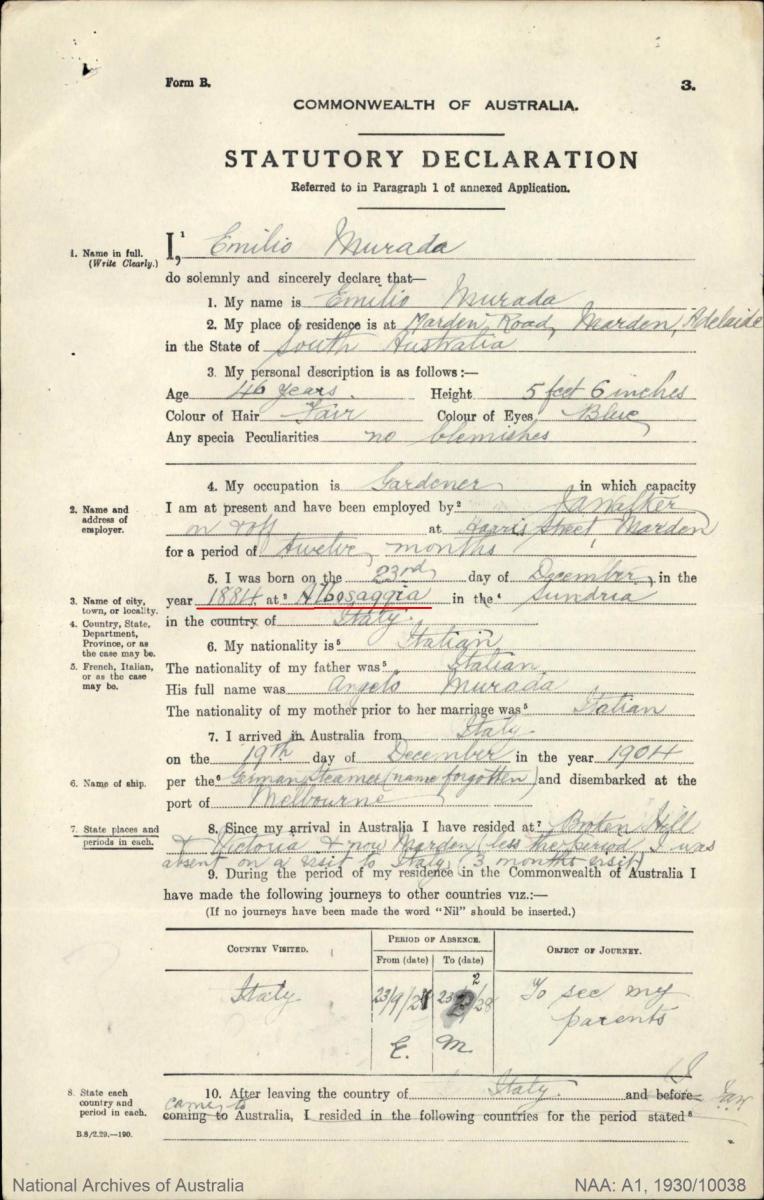 Form B.
3.
COMMONWEALTH OF AUSTRALIA.
STATUTORY DECLARATION
Referred to in Paragraph 1 of annexed Application.
1. Name in full. (Write Clearly.)
I,¹ Emilio Murada
do solemnly and sincerely declare that—
1. My name is Emilio Murada
2. My place of residence is at Marden Road, Marden, Adelaide
in the State of South Australia
3. My personal description is as follows:—
Age 46 years. Height 5 feet 6 inches
Colour of Hair Fair Colour of Eyes Blue
Any special Peculiarities no blemishes
4. My occupation is Gardener in which capacity
2. Name and address of employer.
I am at present and have been employed by²
at Harris Street, Marden
for a period of twelve months
5. I was born on the 23rd day of December, in the
3. Name of city, town, or locality.
year 1884 at³ Albosaggia in the⁴ Sundria
4. Country, State, Department, Province, or as the case may be.
in the country of Italy.
6. My nationality is⁵ Italian
5. French, Italian, or as the case may be.
The nationality of my father was⁵ Italian
His full name was Angelo Murada
The nationality of my mother prior to her marriage was⁵ Italian
7. I arrived in Australia from Italy.
on the 19th day of December in the year 1904
6. Name of ship.
per the⁶ German Steamer (name forgotten) and disembarked at the
port of Melbourne
7. State places and periods in each.
8. Since my arrival in Australia I have resided at⁷ Broken Hill
& Victoria & now Marden (less the period I was
absent on a visit to Italy (3 months visit)
9. During the period of my residence in the Commonwealth of Australia I
have made the following journeys to other countries viz.:—
(If no journeys have been made the word "Nil" should be inserted.)
COUNTRY VISITED.
PERIOD OF ABSENCE.
OBJECT OF JOURNEY.
From (date) To (date)
Italy. 23/9/2 23 2 /28 To see my
parents
E. M.
8. State each country and period in each.
10. After leaving the country of Italy. and before
came to
coming to Australia, I resided in the following countries for the period stated⁸
B.8/2.29.—190.
National Archives of Australia
NAA: A1, 1930/10038